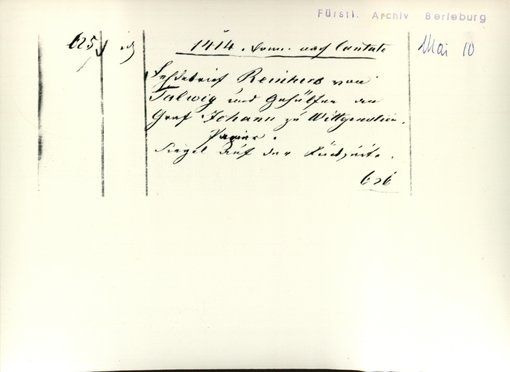 Fürstl. Archiv Berleburg
625
1414. Donn. nach Cantate
Mai 10
Fehdebrief Reinhers von
Talwig und Gehülfen an
Graf Johann zu Wittgenstein.
Papier.
Siegel auf der Rückseite.
626